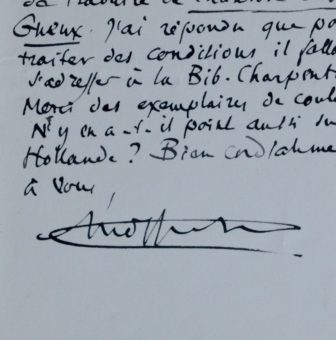 Gueux. J'ai répondu que po
traiter des conditions il fall
s'adresser à la Bib. Charpent
Merci des exemplaires de coule
N'y en a-t-il point aussi su
Hollande ? Bien cordialeme
à vous